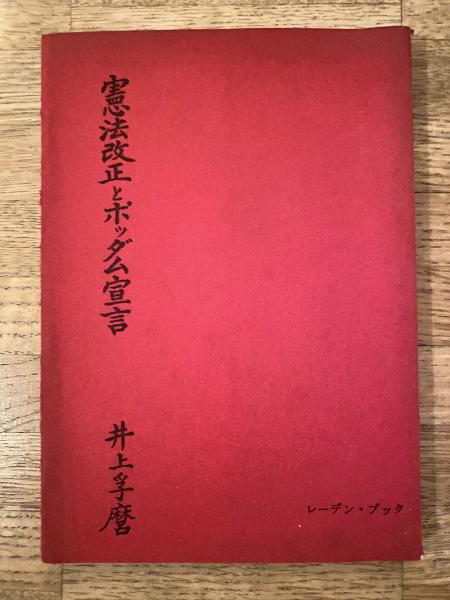 憲法改正とポツダム宣言
井上孚麿
レーデン・ブック